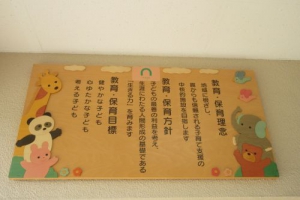 教育・保育理念
地域に根ざし、
誰からも信頼される子育て支援の
中核的施設を目指します
教育・保育方針
子どもの最善の利益を考え、
生涯にわたる人間形成の基礎である
「生きる力」を育みます
教育・保育目標
健やかな子ども
心ゆたかな子ども
考える子ども